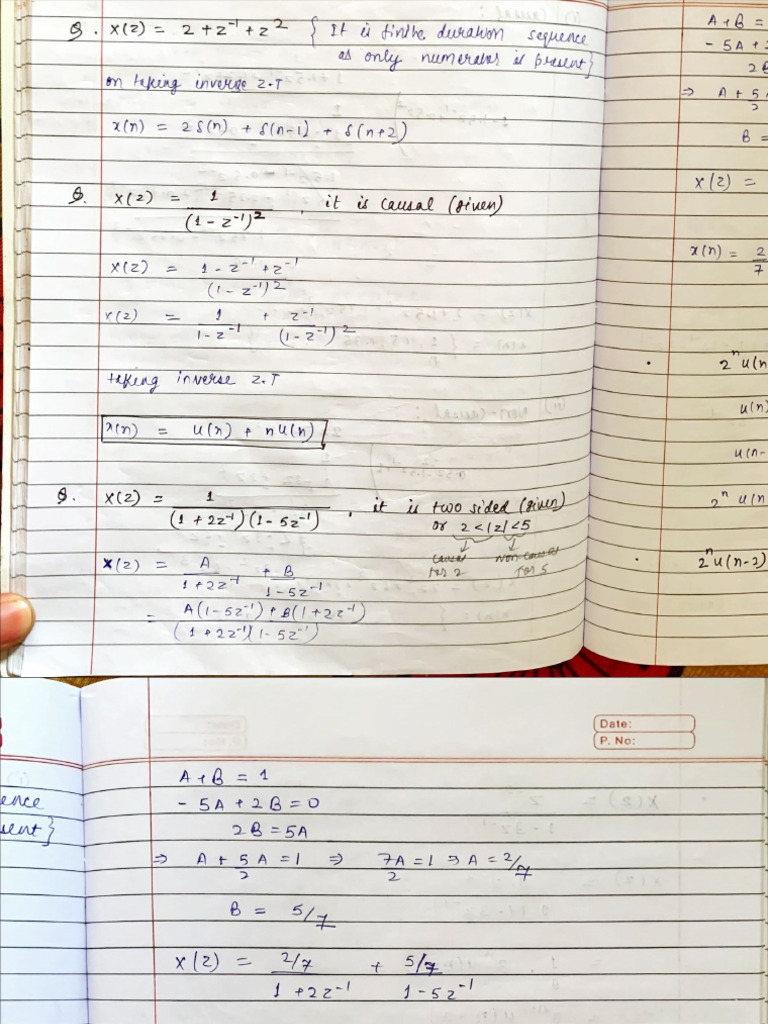 Q. X(z) = 2 + z⁻¹ + z² { It is finite duration sequence
as only numerator is present}
on taking inverse Z.T
x(n) = 2δ(n) + δ(n-1) + δ(n+2)
Q. X(z) = 1 / (1 - z⁻¹)² , it is causal (given)
X(z) = (1 - z⁻¹ + z⁻¹) / (1 - z⁻¹)²
X(z) = 1 / (1 - z⁻¹) + z⁻¹ / (1 - z⁻¹)²
taking inverse Z.T
x(n) = u(n) + nu(n)
Q. X(z) = 1 / ((1 + 2z⁻¹)(1 - 5z⁻¹)) , it is two sided (given)
or 2 < |z| < 5
causal for 2
Non causal for 5
X(z) = A / (1 + 2z⁻¹) + B / (1 - 5z⁻¹)
= (A(1 - 5z⁻¹) + B(1 + 2z⁻¹)) / ((1 + 2z⁻¹)(1 - 5z⁻¹))
A + B =
- 5A +
2B
⇒ A + 5/2
B =
X(z) =
x(n) = 2/7
2ⁿ u(n
u(n)
u(n-
2ⁿ u(n
2ⁿ u(n-2)
Date:
P. No:
ence
sent}
A + B = 1
- 5A + 2B = 0
2B = 5A
⇒ A + 5/2 A = 1 ⇒ 7A/2 = 1 ⇒ A = 2/7
B = 5/7
X(z) = 2/7 / (1 + 2z⁻¹) + 5/7 / (1 - 5z⁻¹)